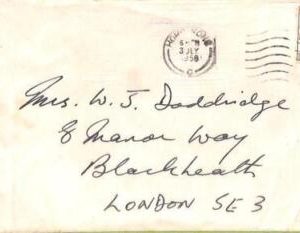 HONG KONG
6 - PM
3 JLY
1958
C
Mrs. W. J. Doddridge
8 Manor Way
Blackheath
LONDON SE 3